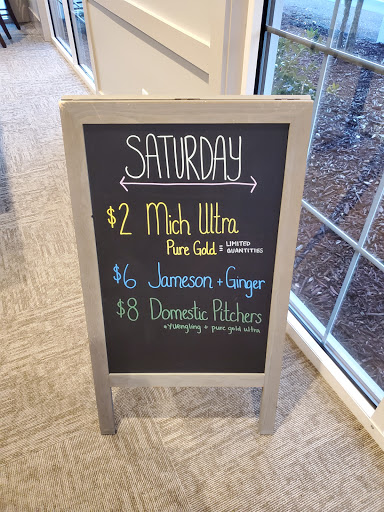 SATURDAY
$2 Mich Ultra
Pure Gold = LIMITED QUANTITIES
$6 Jameson + Ginger
$8 Domestic Pitchers
*Yuengling + pure gold ultra